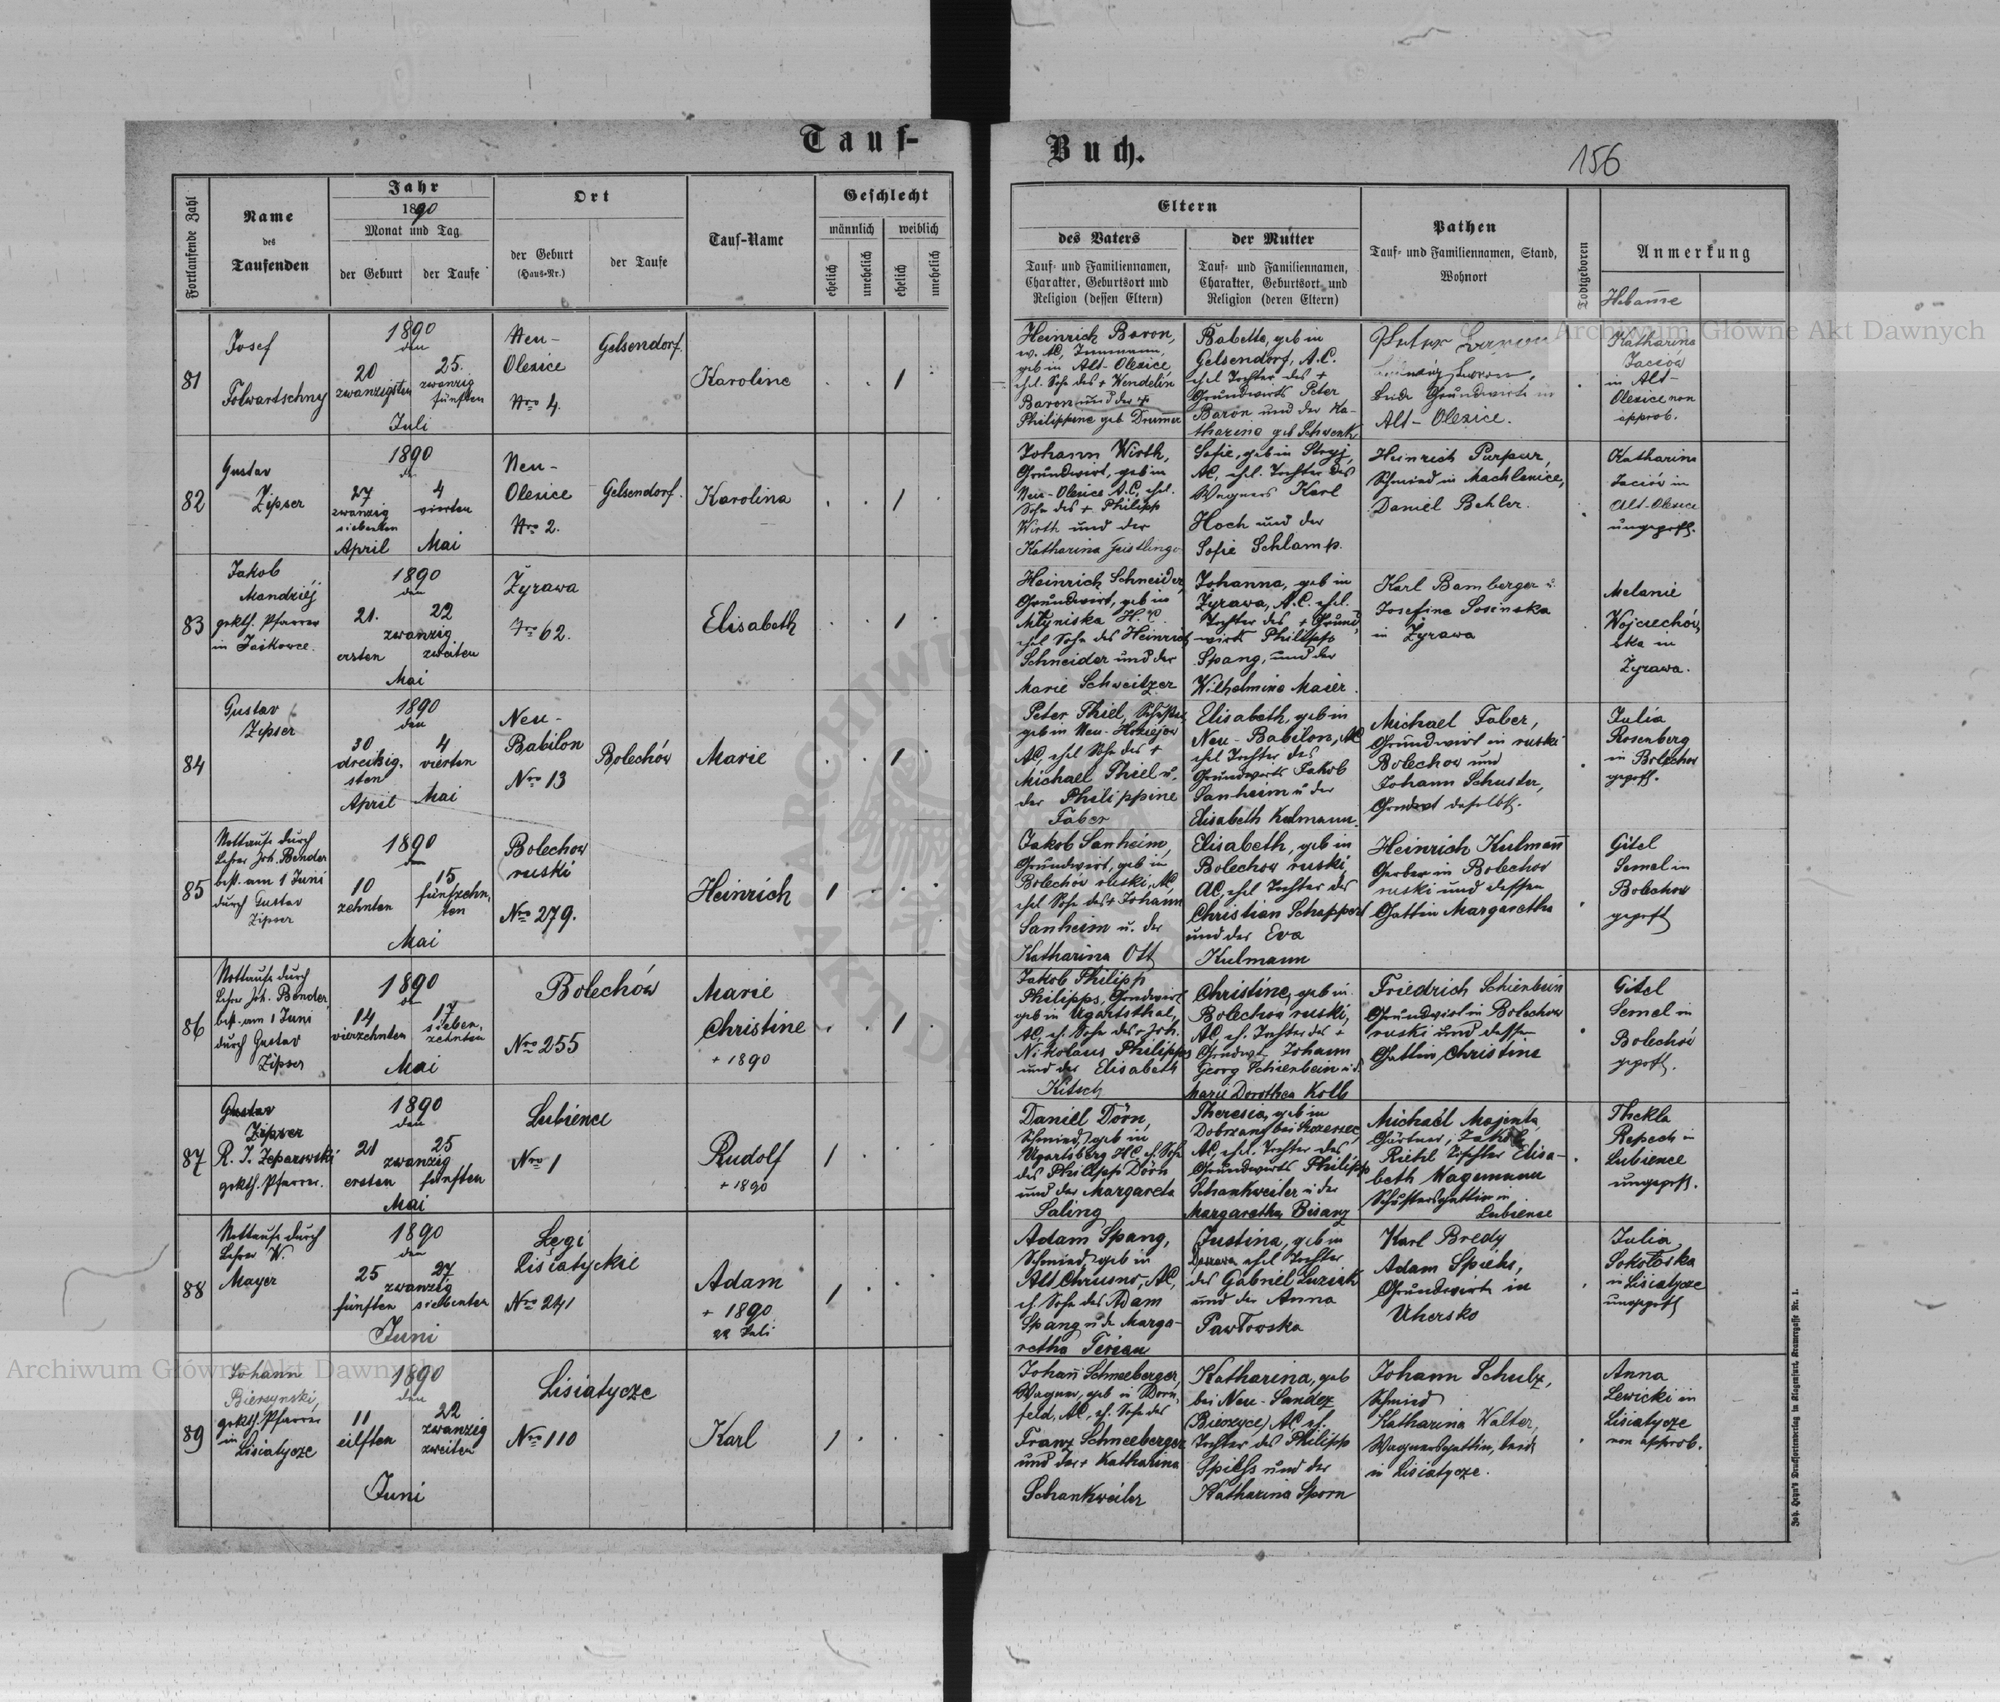 Tauf-
Buch.
156
Fortlaufende Zahl
Name
des
Taufenden
Jahr
1890
Monat und Tag
der Geburt
der Taufe
Ort
der Geburt
(Haus-Nr.)
der Taufe
Tauf-Name
Geschlecht
männlich
weiblich
ehelich
unehelich
ehelich
unehelich
Eltern
des Vaters
Tauf- und Familiennamen,
Charakter, Geburtsort und
Religion (dessen Eltern)
der Mutter
Tauf- und Familiennamen,
Charakter, Geburtsort und
Religion (deren Eltern)
Pathen
Tauf- und Familiennamen, Stand,
Wohnort
Todtgeboren
Anmerkung
Hebamme
81
Josef
Folwartschny
1890
den
20
zwanzigsten
25.
zwanzig
fünften
Juli
Neu-
Olexice
Nro 4.
Gelsendorf.
Karoline
1
Heinrich Baron,
geb in Alt-Olexice,
ehl. Sohn des + Wendelin
Baron und der
Philippine geb Drumer
Babette, geb in
Gelsendorf, A.C.
ehel Tochter des +
Grundwirts Peter
Baron und der Ka-
tharina geb Schwenk
Peter Baron
beide Grundwirte in
Alt-Olexice.
Katharina
Jaciów
in Alt-
Olexice non
approb.
82
Gustav
Zipser
1890
den
27
zwanzig
siebenten
April
4
vierten
Mai
Neu-
Olexice
Nro 2.
Gelsendorf.
Karolina
1
Johann Wirth,
Grundwirt, geb in
Neu-Olexice A.C, ehel.
Sohn des + Philipp
Wirth und der
Katharina Geistlinger
Sofie, geb in Stryj,
AC, ehl. Tochter des
Wagners Karl
Hoch und der
Sofie Schlamp.
Heinrich Purpur,
Schmied in Machlenice,
Daniel Behler.
Katharina
Jaciów in
Alt-Olexice
ungeprft.
83
Jakob
Mandziej
gr.kth. Pfarrer
in Jaikowce.
1890
den
21.
22
zwanzig
ersten
zweiten
Mai
Żyrawa
Nro 62.
Elisabeth
1
Heinrich Schneider,
Grundwirt, geb in
Młyniska H.C.
ehel Sohn des Heinrich
Schneider und der
Marie Schweitzer
Johanna, geb in
Żyrawa, A.C. ehel.
Tochter des + Grund-
wirts Philipp
Spang, und der
Wilhelmine Maier.
Karl Bamberger u.
Josefine Sosinska
in Żyrawa
Melanie
Wojciechów-
ska in
Żyrawa.
84
Gustav
Zipser
1890
den
30
dreißig-
sten
April
4
vierten
Mai
Neu-
Babilon
Nro 13
Bolechów
Marie
1
Peter Thiel, Schuster
geb in Neu-
AC, ehel Sohn des +
Michael Thiel u.
der Philippine
Faber
Elisabeth, geb in
Neu-Babilon, AC
ehl Tochter des
Grundwirts Jakob
Sanheim u der
Elisabeth Kulmann.
Michael Faber,
Grundwirt in ruski
Bolechow und
Johann Schuster,
Grndwrt daselbst.
Julia
Rosenberg
in Bolechow
geprft.
85
Nottaufe durch
Lehrer Joh. Bender
best. am 1 Juni
durch Gustav
Zipser
1890
den
10
zehnten
15
fünfzehn-
ten
Mai
Bolechow
ruski
Nro 279.
Heinrich
1
Jakob Sanheim,
Grundwirt, geb in
Bolechów ruski, AC,
ehel Sohn des + Johann
Sanheim u. der
Katharina Ott
Elisabeth, geb in
Bolechow ruski
AC, ehel Tochter des
Christian Schappert
und der Eva
Kulmann
Heinrich Kulmann
Gerber in Bolechow
ruski und dessen
Gattin Margaretha
Gitel
Semel in
Bolechow
geprft
86
Nottaufe durch
Lehrer Joh. Bender,
best. am 1 Juni
durch Gustav
Zipser
1890
den
14
vierzehnten
17
sieben-
zehnten
Mai
Bolechów
Nro 255
Marie
Christine
+ 1890
1
Jakob Philipp
Philipps, Grndwirt
geb in Ugartsthal,
AC, eh. Sohn des + Joh.
Nikolaus Philipps
und der Elisabeth
Kitsch
Christine, geb in
Bolechow ruski,
AC, eh. Tochter des +
Grndwrt Johann
Georg Schienbein u d.
Marie Dorothea Kolb
Friedrich Schienbein
Grundwirt in Bolechow
ruski und dessen
Gattin Christine
Gitel
Semel in
Bolechów
geprft.
87
Gustav
Zipser
R. T. Zeparowski
gr.kth. Pfarrer.
1890
den
21
25
zwanzig
ersten
fünften
Mai
Lubience
Nro 1
Rudolf
+ 1890
1
Daniel Dörn,
Schmied, geb in
Ugartsberg HC eh. Sohn
des Philipp Dörn
und der Margareta
Saling
Theresia, geb in
Dobrzany bei Szczerzec,
AC, ehel. Tochter des
Grundwirts Philipp
Schankweiler u der
Margaretha Bisanz
Michael Majenta,
Gärtner, Jakob
Riebel Tischler Elisa-
beth Wagemann
Schustersgattin in
Lubience
Thekla
Repech in
Lubience
ungeprft.
88
Nottaufe durch
Lehrer W.
Mayer
1890
den
25
27
zwanzig
fünften
siebenten
Juni
Łęgi
Lisiatyckie
Nro 241
Adam
+ 1890
22 Juli
1
Adam Spang,
Schmied, geb in
Alt Chrusno, AC,
eh. Sohn des Adam
Spang u d. Marga-
retha Ferian
Justina, geb in
ehel Tochter
des Gabriel Luziak
und der Anna
Pawłowska
Karl Bredy
Adam Spiehs,
Grundwirte in
Uhersko
Julia
Sokołoska
in Lisiatycze
ungeprft
89
Johann
Bierzynski,
gr.kth. Pfarrer
in
Lisiatycze
1890
den
11
eilften
22
zwanzig
zweiten
Juni
Lisiatycze
Nro 110
Karl
1
Johann Schneeberger,
Wagner, geb in Dorn-
feld, AC, eh. Sohn des
Franz Schneeberger
und der + Katharina
Schankweiler
Katharina, geb
bei Neu-Sandez
(Biczyce), AC eh.
Tochter des Philipp
Spiehs und der
Katharina Sporn
Johann Schulz,
Schmied
Katharina Walter,
Wagnersgattin, beide
in Lisiatycze.
Anna
Lewicki in
Lisiatycze
non approb.
Joh. Heyn's Drucksortenverlag in Klagenfurt, Kramergasse Nr. 1.
Archiwum Główne Akt Dawnych
Archiwum Główne Akt Dawnych